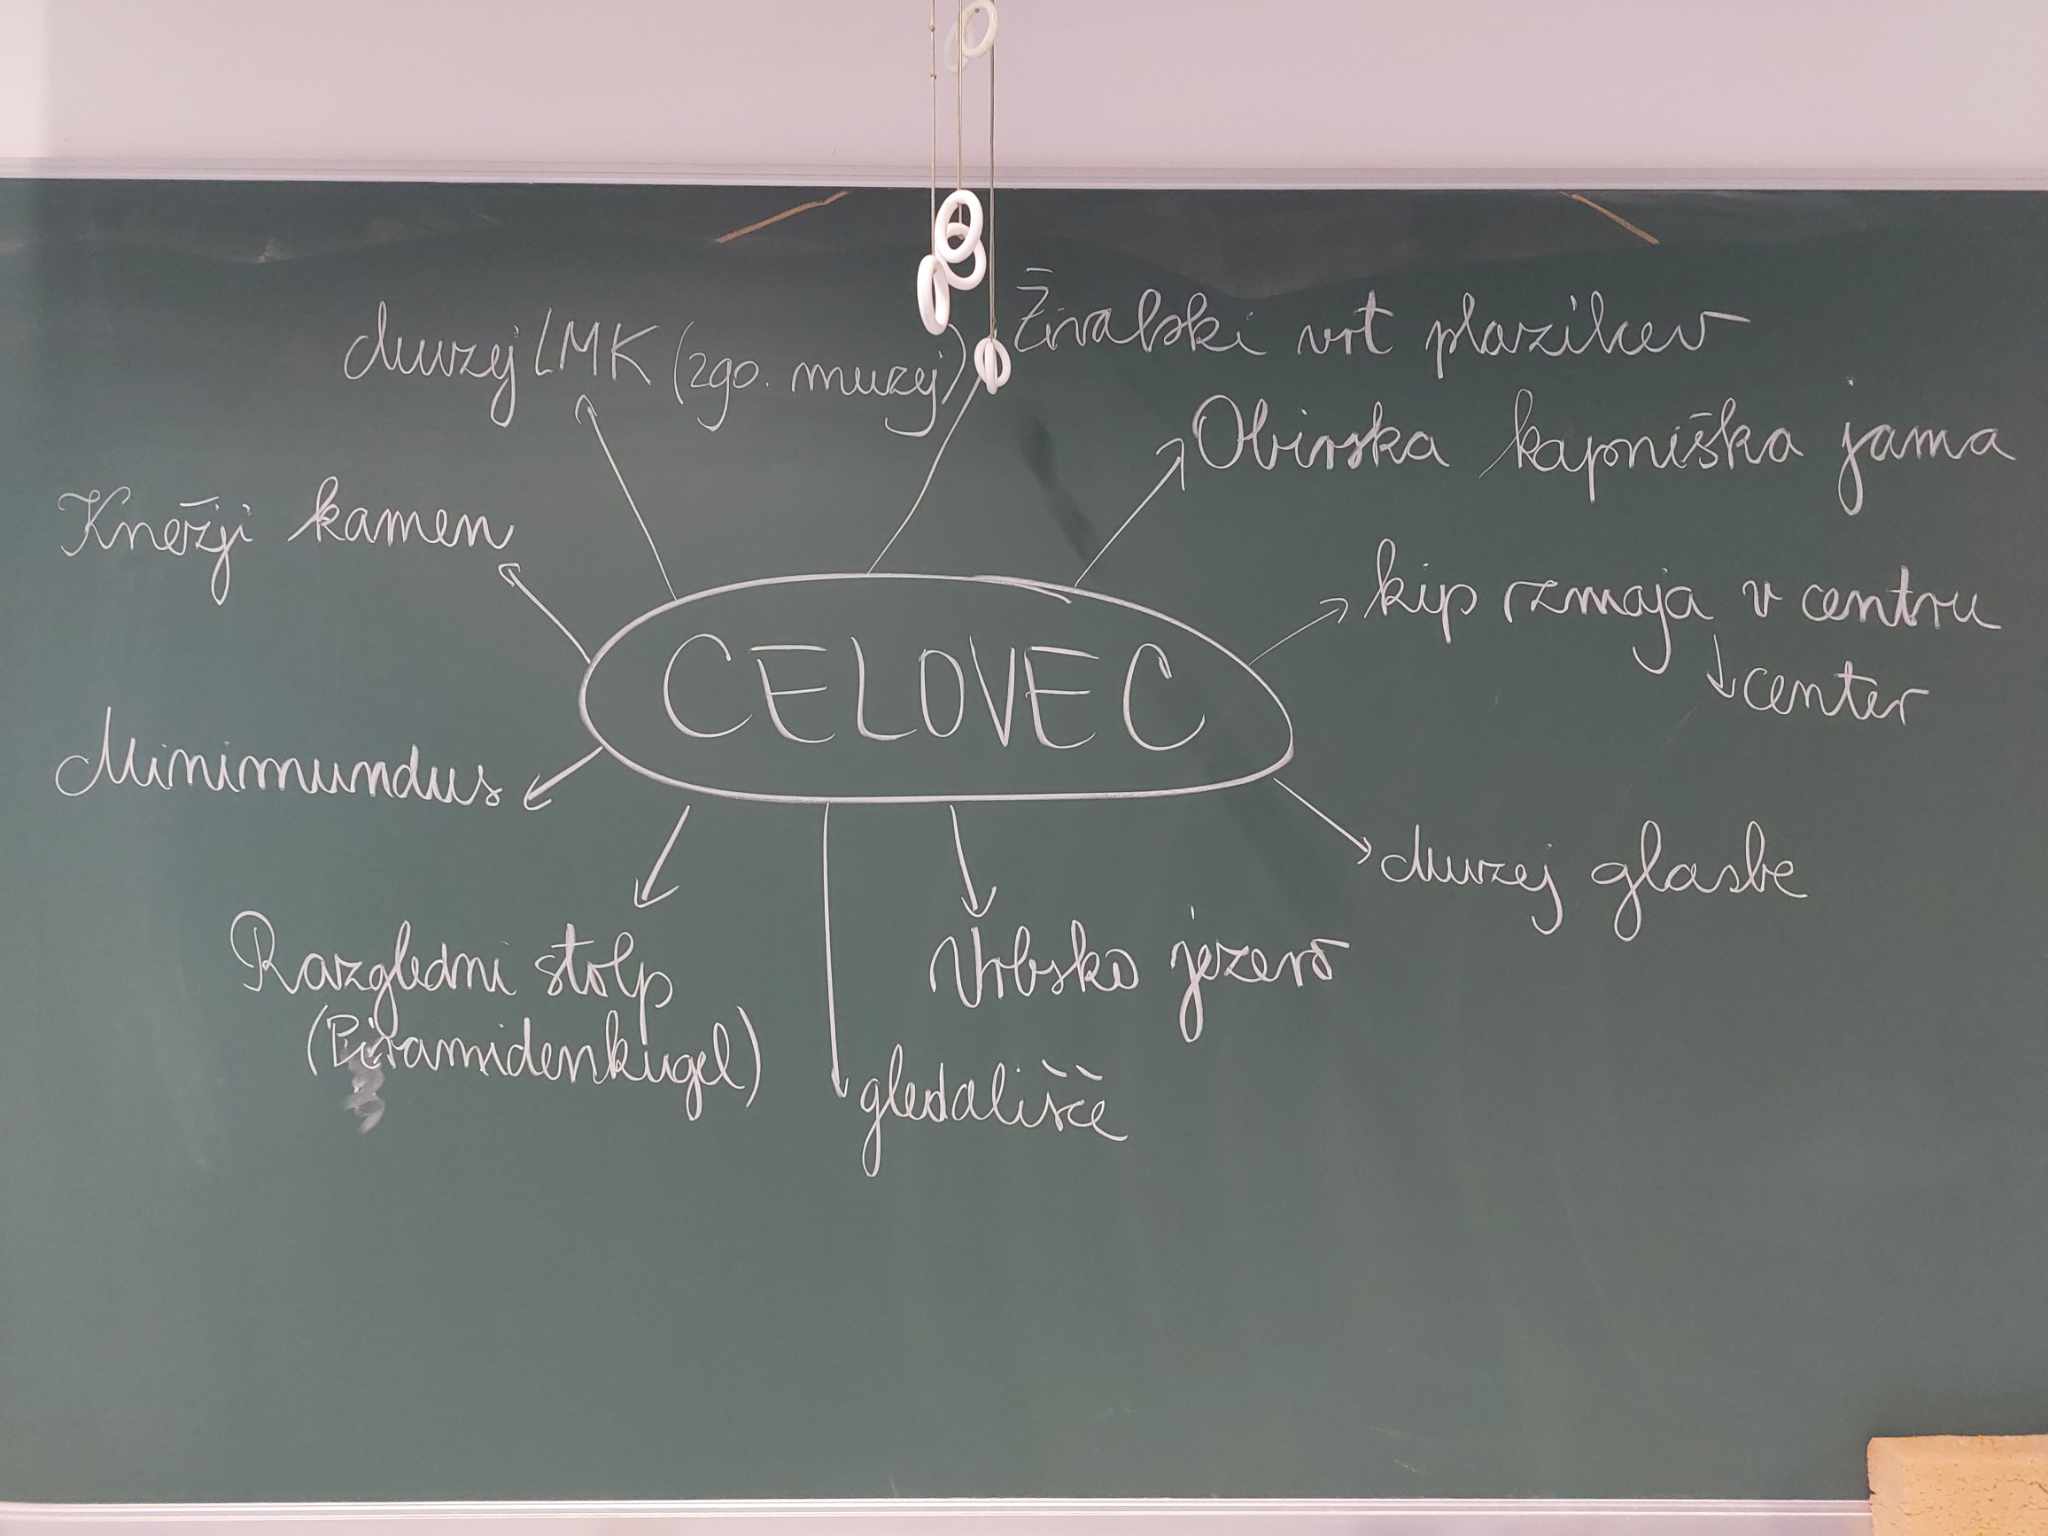 Živalski vrt plazilcev
Muzej LMK (zgo. muzej)
Obirska kapniška jama
Knežji kamen
kip zmaja v centru
center
CELOVEC
Minimundus
Muzej glasbe
Razgledni stolp
(Piramidenkugel)
Vrbsko jezero
gledališče